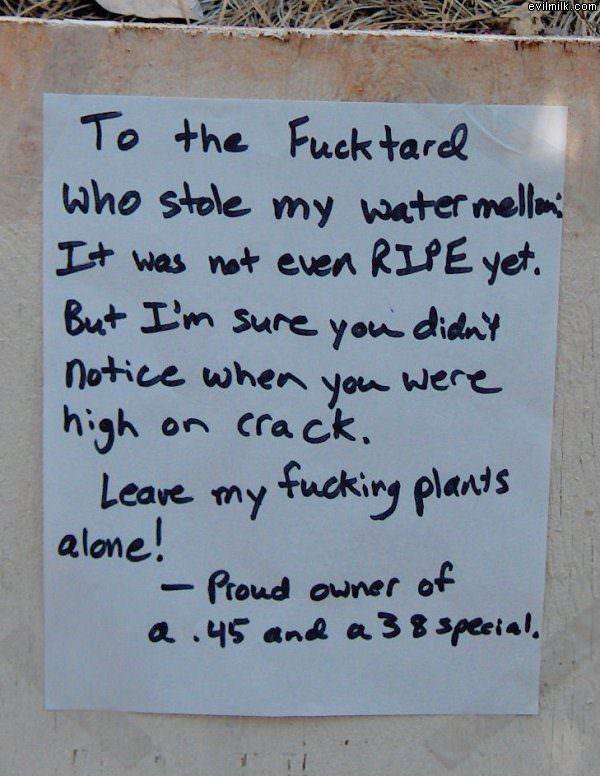 evilmilk.com
To the Fucktard
who stole my watermellon:
It was not even RIPE yet.
But I'm sure you didn't
notice when you were
high on crack.
Leave my fucking plants
alone!
— Proud owner of
a .45 and a 38 special.